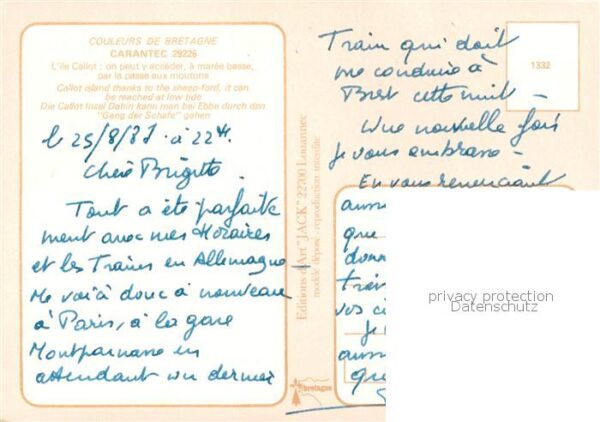 COULEURS DE BRETAGNE
CARANTEC 29226
L'île Callot : on peut y accéder, à marée basse,
par la passe aux moutons
Callot island thanks to the sheep-ford, it can
be reached at low tide
Die Callot Insel Dahin kann man bei Ebbe durch den
"Gang der Schafe" gehen
le 25/8/87 à 22H
Chère Brigitte
Tout a été parfaite
ment avec mes Horaires
et les Trains en Allemagne
Me voilà donc à nouveau
à Paris, à la gare
Montparnasse en
attendant un dernier
Editions d'Art "JACK" 22700 Louannec
modèle déposé - reproduction interdite
bretagne
Train qui doit
me conduire à
Brest cette nuit -
Une nouvelle fois
je vous embrasse -
En vous remerciant
aussi
que
donn
vos
je
aussi
que
1332
privacy protection
Datenschutz